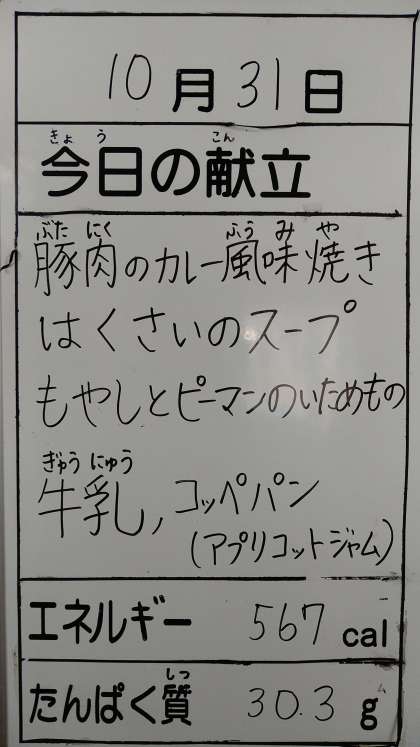 10月31日
きょう こん
今日の献立
ぶた にく ふう み や
豚肉のカレー風味焼き
はくさいのスープ
もやしとピーマンのいためもの
ぎゅう にゅう
牛乳, コッペパン
(アプリコットジャム)
エネルギー 567 cal
しつ
たんぱく質 30.3 g